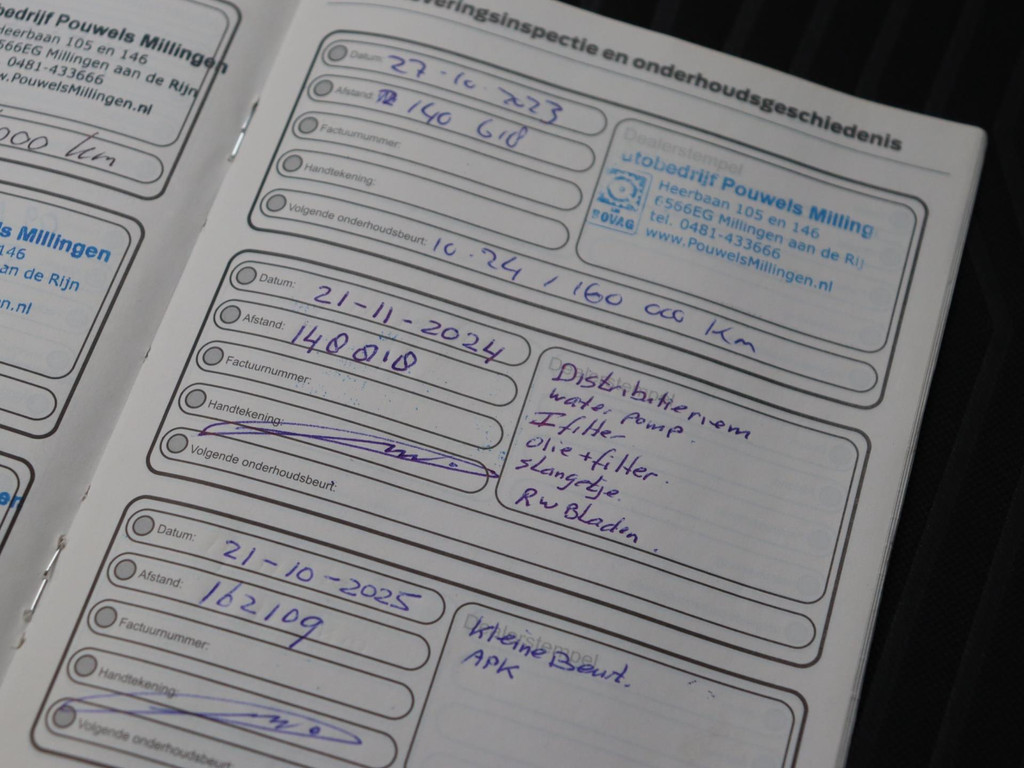 bedrijf Pouwels Millingen
Heerbaan 105 en 146
6566EG Millingen aan de Rijn
0481-433666
w.PouwelsMillingen.nl
000 km
s Millingen
146
an de Rijn
n.nl
en
veringsinspectie en onderhoudsgeschiedenis
Datum: 27-10-2023
Afstand: 140 618
Factuurnummer:
Handtekening:
Volgende onderhoudsbeurt: 10.24 / 160 000 Km
Dealerstempel
utobedrijf Pouwels Milling
Heerbaan 105 en 146
6566EG Millingen aan de Rij
tel. 0481-433666
www.PouwelsMillingen.nl
BOVAG
Datum: 21-11-2024
Afstand: 148818
Factuurnummer:
Handtekening:
Volgende onderhoudsbeurt:
Dealerstempel
Distributieriem
water pomp.
Ifilter
olie + filter.
slangetje.
RW Bladen.
Datum: 21-10-2025
Afstand: 162109
Factuurnummer:
Handtekening:
Volgende onderhoudsbeurt:
Dealerstempel
Kleine Beurt.
APK